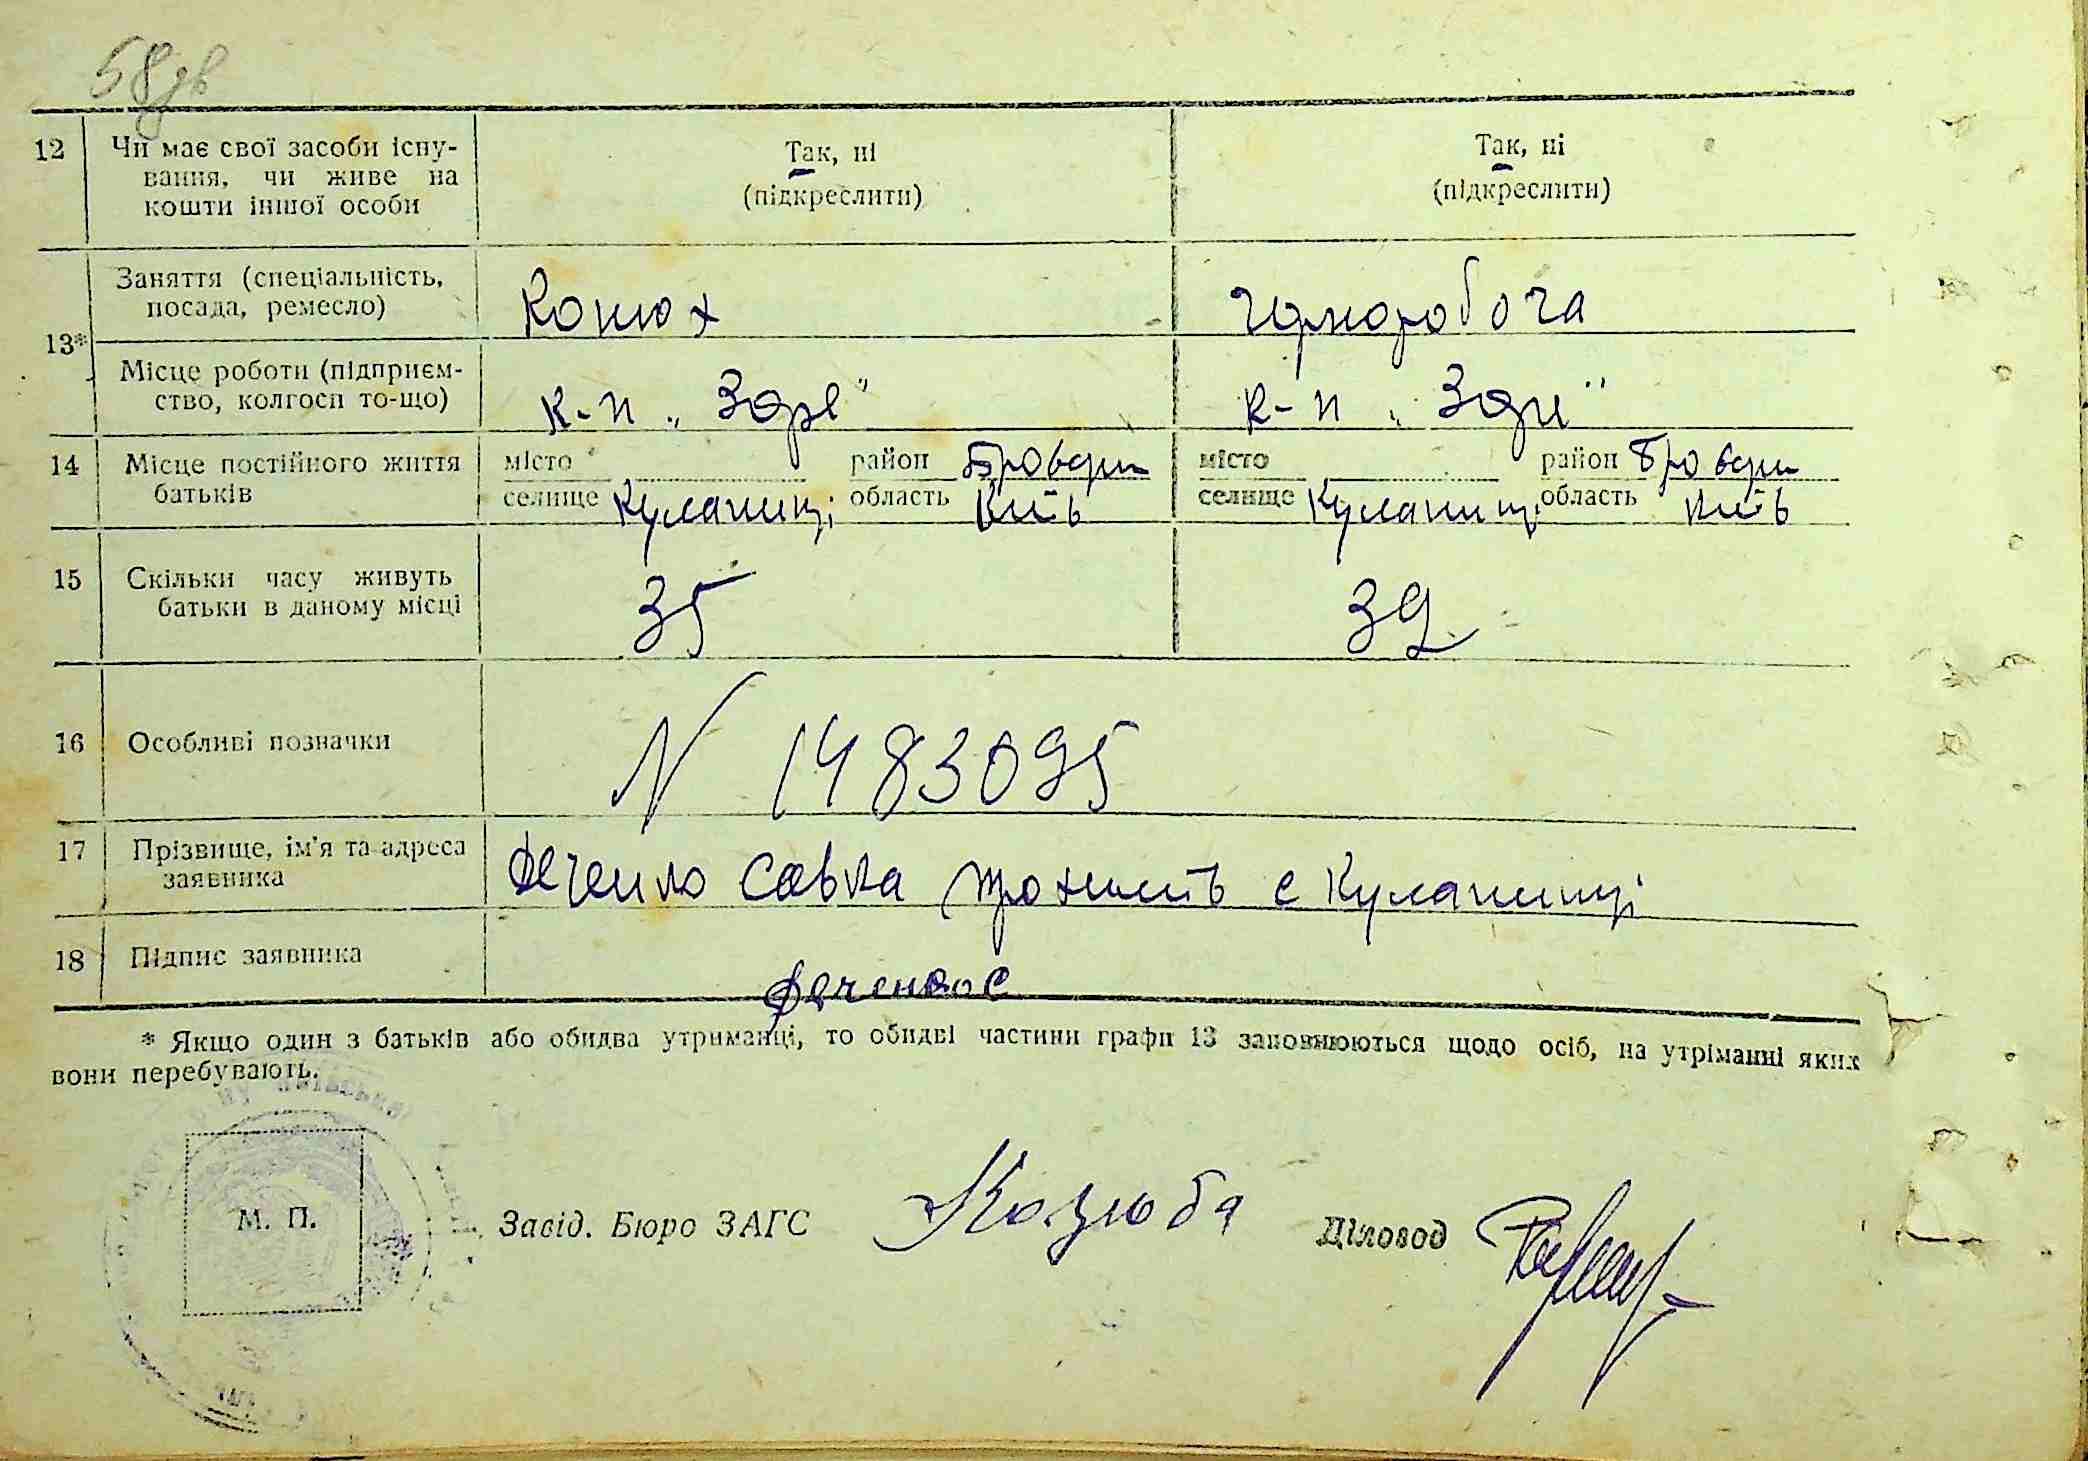 58зв
12 Чи має свої засоби існу- Так, ні Так, ні
вання, чи живе на (підкреслити) (підкреслити)
кошти іншої особи
Заняття (спеціальність, Конюх Чорноробоча
посада, ремесло)
13*
Місце роботи (підприєм- к-п „Зоря" к-п „Зоря"
ство, колгосп то-що)
14 Місце постійного життя місто район Бровари місто район Бровари
батьків селище Кулажинці область Київ селище Кулажинці область Київ
15 Скільки часу живуть 35 32
батьки в даному місці
16 Особливі позначки N 1483095
17 Прізвище, ім'я та адреса Феченко Савка прожив с Кулажинці
заявника
18 Підпис заявника Феченко С
* Якщо один з батьків або обидва утриманці, то обидві частини графи 13 заповнюються щодо осіб, на утріманні яких
вони перебувають.
М. П. Завід. Бюро ЗАГС Козюба Діловод